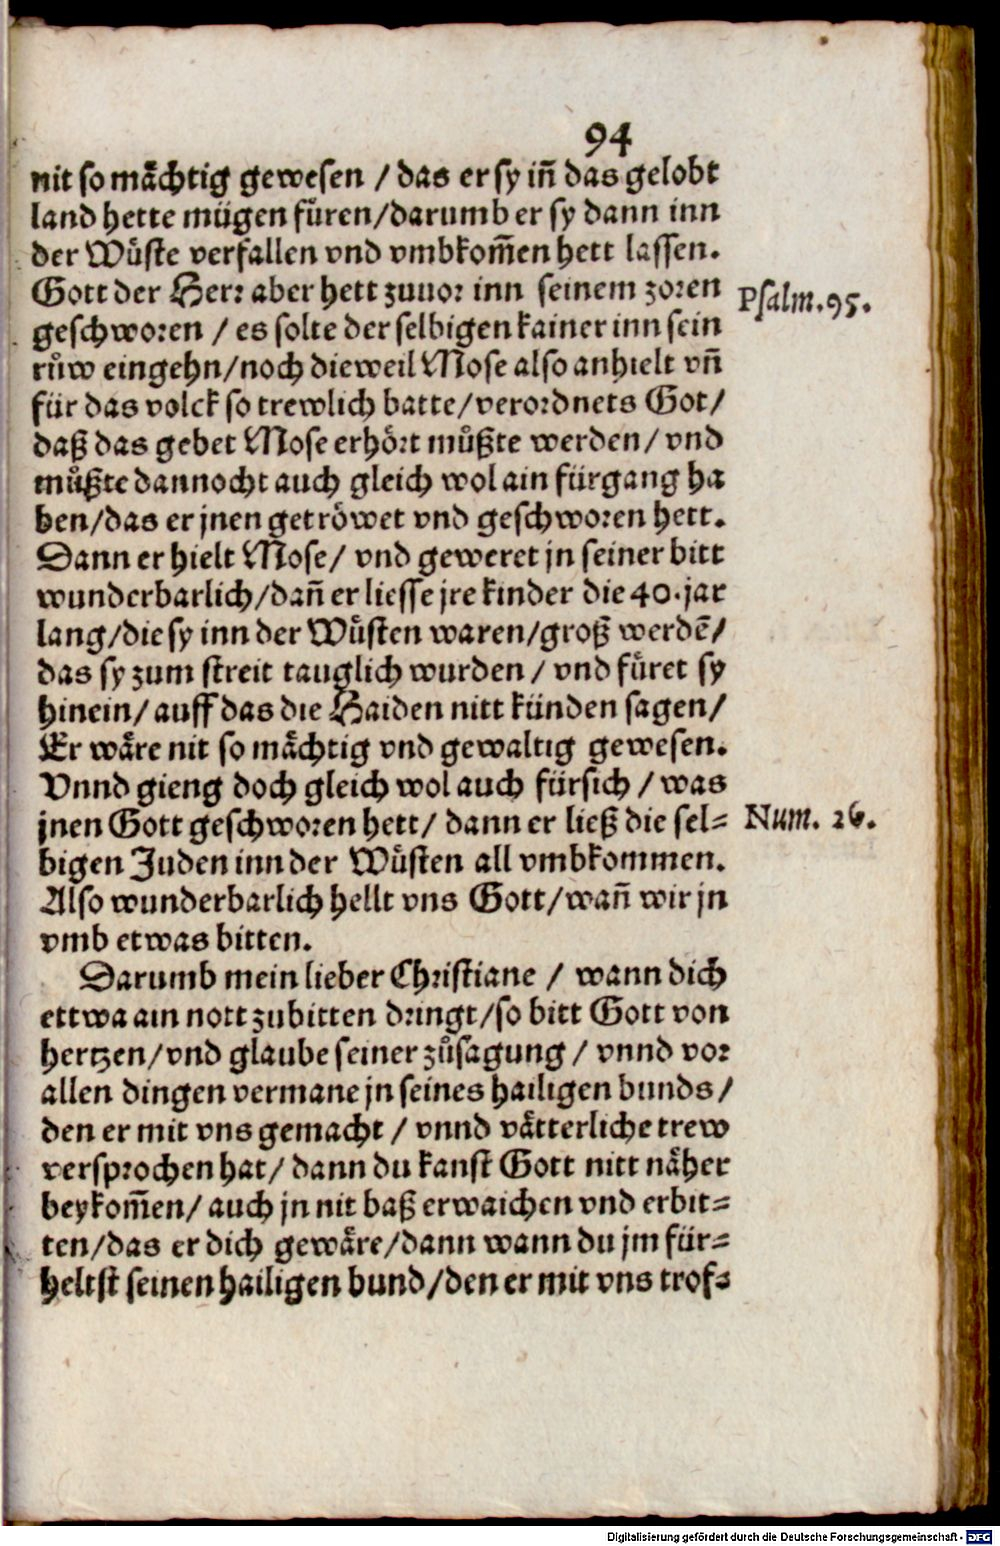 94
nit so mächtig gewesen / das er sy in̄ das gelobt
land hette mügen füren/darumb er sy dann inn
der Wüste verfallen vnd vmbkom̄en hett lassen.
Gott der Herr aber hett zuuor inn seinem zoren
Psalm. 95.
geschworen / es solte der selbigen kainer inn sein
růw eingehn/noch dieweil Mose also anhielt vn̄
für das volck so trewlich batte/verordnets Got/
daß das gebet Mose erhört můßte werden/ vnd
můßte dannocht auch gleich wol ain fürgang ha
ben/das er jnen getröwet vnd geschworen hett.
Dann er hielt Mose/ vnd geweret jn seiner bitt
wunderbarlich/dan̄ er liesse jre kinder die 40. jar
lang/die sy inn der Wüsten waren/groß werdē/
das sy zum streit tauglich wurden / vnd füret sy
hinein/ auff das die Haiden nitt künden sagen/
Er wäre nit so mächtig vnd gewaltig gewesen.
Vnnd gieng doch gleich wol auch fürsich / was
jnen Gott geschworen hett/ dann er ließ die sel=
Num. 26.
bigen Juden inn der Wüsten all vmbkommen.
Also wunderbarlich hellt vns Gott/wan̄ wir jn
vmb etwas bitten.
Darumb mein lieber Christiane / wann dich
ettwa ain nott zubitten dringt/so bitt Gott von
hertzen/vnd glaube seiner zůsagung / vnnd vor
allen dingen vermane jn seines hailigen bunds/
den er mit vns gemacht / vnnd vätterliche trew
versprochen hat/ dann du kanst Gott nitt näher
beykom̄en/ auch jn nit baß erwaichen vnd erbit=
ten/das er dich gewäre/dann wann du jm für=
heltst seinen hailigen bund/den er mit vns trof=
Digitalisierung gefördert durch die Deutsche Forschungsgemeinschaft - DFG